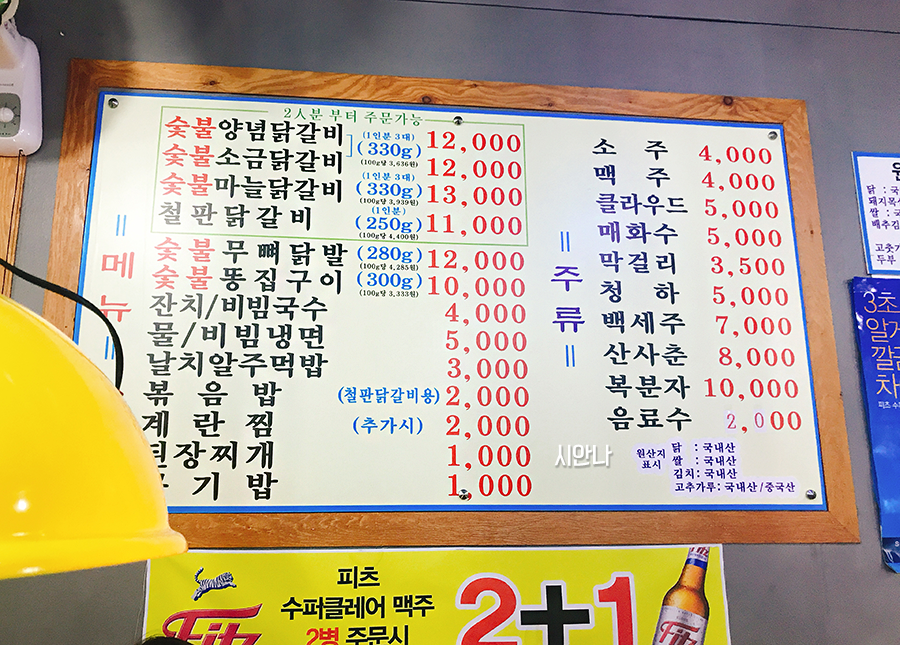 2人분 부터 주문가능
숯불양념닭갈비 (1인분 3대) (330g) 12,000
숯불소금닭갈비 (100g당 3,636원) 12,000
숯불마늘닭갈비 (1인분 3대) (330g) (100g당 3,939원) 13,000
철판닭갈비 (1인분) (250g) (100g당 4,400원) 11,000
숯불무뼈닭발 (280g) (100g당 4,285원) 12,000
숯불똥집구이 (300g) (100g당 3,333원) 10,000
잔치/비빔국수 4,000
물/비빔냉면 5,000
날치알주먹밥 3,000
볶음밥 (철판닭갈비용) 2,000
계란찜 (추가시) 2,000
된장찌개 1,000
공기밥 1,000
= 메뉴 =
= 주류 =
소주 4,000
맥주 4,000
클라우드 5,000
매화수 5,000
막걸리 3,500
청하 5,000
백세주 7,000
산사춘 8,000
복분자 10,000
음료수 2,000
시안나
원산지 표시
닭 : 국내산
쌀 : 국내산
김치 : 국내산
고추가루 : 국내산/중국산
닭 : 국
쌀 : 국
배추김
고춧가
두부
3초
알게
피츠
수퍼클레어 맥주
2병 주문시
Fitz
2+1
Fitz